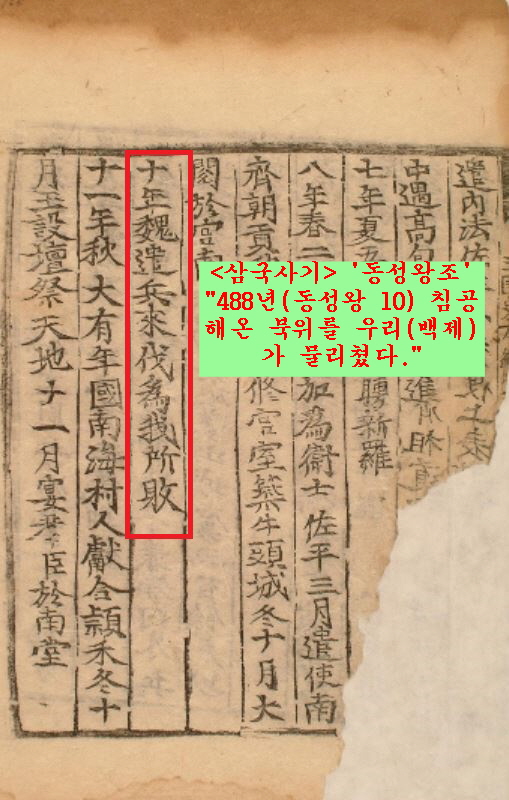 遣內法佐
中遇高句
七年夏五 聘新羅
八年春二 加爲衛士佐平三月遣使南
齊朝貢 修宮室築牛頭城冬十月大
閱於宮南
十年魏遣兵來伐爲我所敗
十一年秋大有年國南海村人獻合穎禾冬十
月王設壇祭天地十一月宴羣臣於南堂
<삼국사기> '동성왕조'
"488년(동성왕 10) 침공
해온 북위를 우리(백제)
가 물리쳤다."